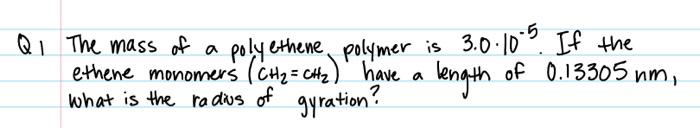 Q1 The mass of a polyethene polymer is 3.0·10⁻⁵. If the
ethene monomers (CH₂=CH₂) have a length of 0.13305 nm,
what is the radius of gyration?